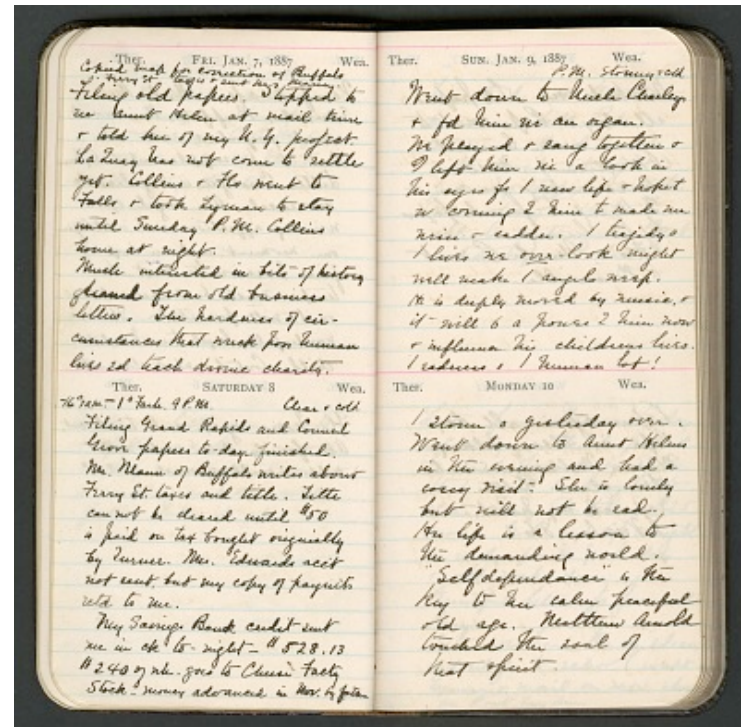 Ther. FRI. JAN. 7, 1887 Wea.
Copied map for correction of Buffalo
Ferry St. taxes & sent Mr. Mann
Filing old papers. Stopped to
see Aunt Helen at mail time
& told her of my N.Y. project.
La Quay has not come to settle
yet. Collins & Flo went to
Falls & took Lyman to stay
until Sunday P.M. Collins
home at night.
Much interested in bits of history
gleaned from old business
letters. The hardness of cir-
cumstances that wreck poor human
lives 2d teach divine charity.
Ther. SATURDAY 8 Wea.
9 P.M. Clear & cold
Filing Grand Rapids and Council
Grove papers to-day finished.
Mr. Mann of Buffalo writes about
Ferry St. taxes and title. Title
can not be cleared until $50
is paid on tax bought originally
by Turner. Mrs. Edwards acct
not sent but my copy of paymts
retd to me.
My Savings Bank credit sent
me in ck to-night - $528.13
$240 of wh. goes to Cheese Facty
Stock - money advanced in Nov. by
Ther. SUN. JAN. 9, 1887 Wea.
P.M. Stormy & cold
Went down to Uncle Charleys
& fd him in an organ.
We played & sang together &
I left him in a look in
his eyes as I new life & hope
coming 2 him to made me
& sadder. I tragedys
I lives we over-look might
well make I angels weep.
He is deeply moved by music, &
it will b a power 2 him now
& influence his childrens lives.
I sadness I human lot!
Ther. MONDAY 10 Wea.
I storm o yesterday over.
Went down to Aunt Helens
in the evening and had a
cosey visit - She is lonely
but will not be sad.
Her life is a lesson to
the demanding world.
"Selfdependance" is the
key to her calm peaceful
old age. Matthew Arnold
touched the soul of
that spirit.